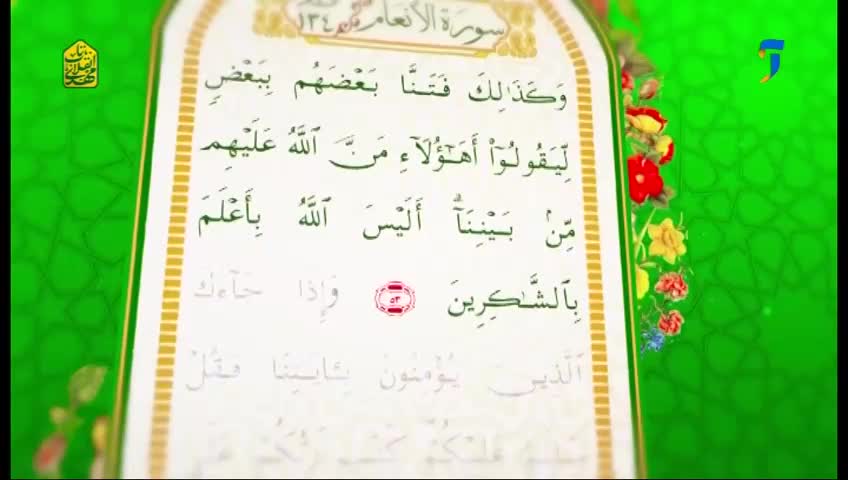 سورة الأنعام
١٣٤
وَكَذَٰلِكَ فَتَنَّا بَعْضَهُم بِبَعْضٍ
لِّيَقُولُوٓا۟ أَهَٰٓؤُلَآءِ مَنَّ ٱللَّهُ عَلَيْهِم
مِّنۢ بَيْنِنَآ ۗ أَلَيْسَ ٱللَّهُ بِأَعْلَمَ
بِٱلشَّٰكِرِينَ ٥٣ وَإِذَا جَآءَكَ
ٱلَّذِينَ يُؤْمِنُونَ بِـَٔايَٰتِنَا فَقُلْ
سَلَٰمٌ عَلَيْكُمْ كَتَبَ رَبُّكُمْ عَلَىٰ